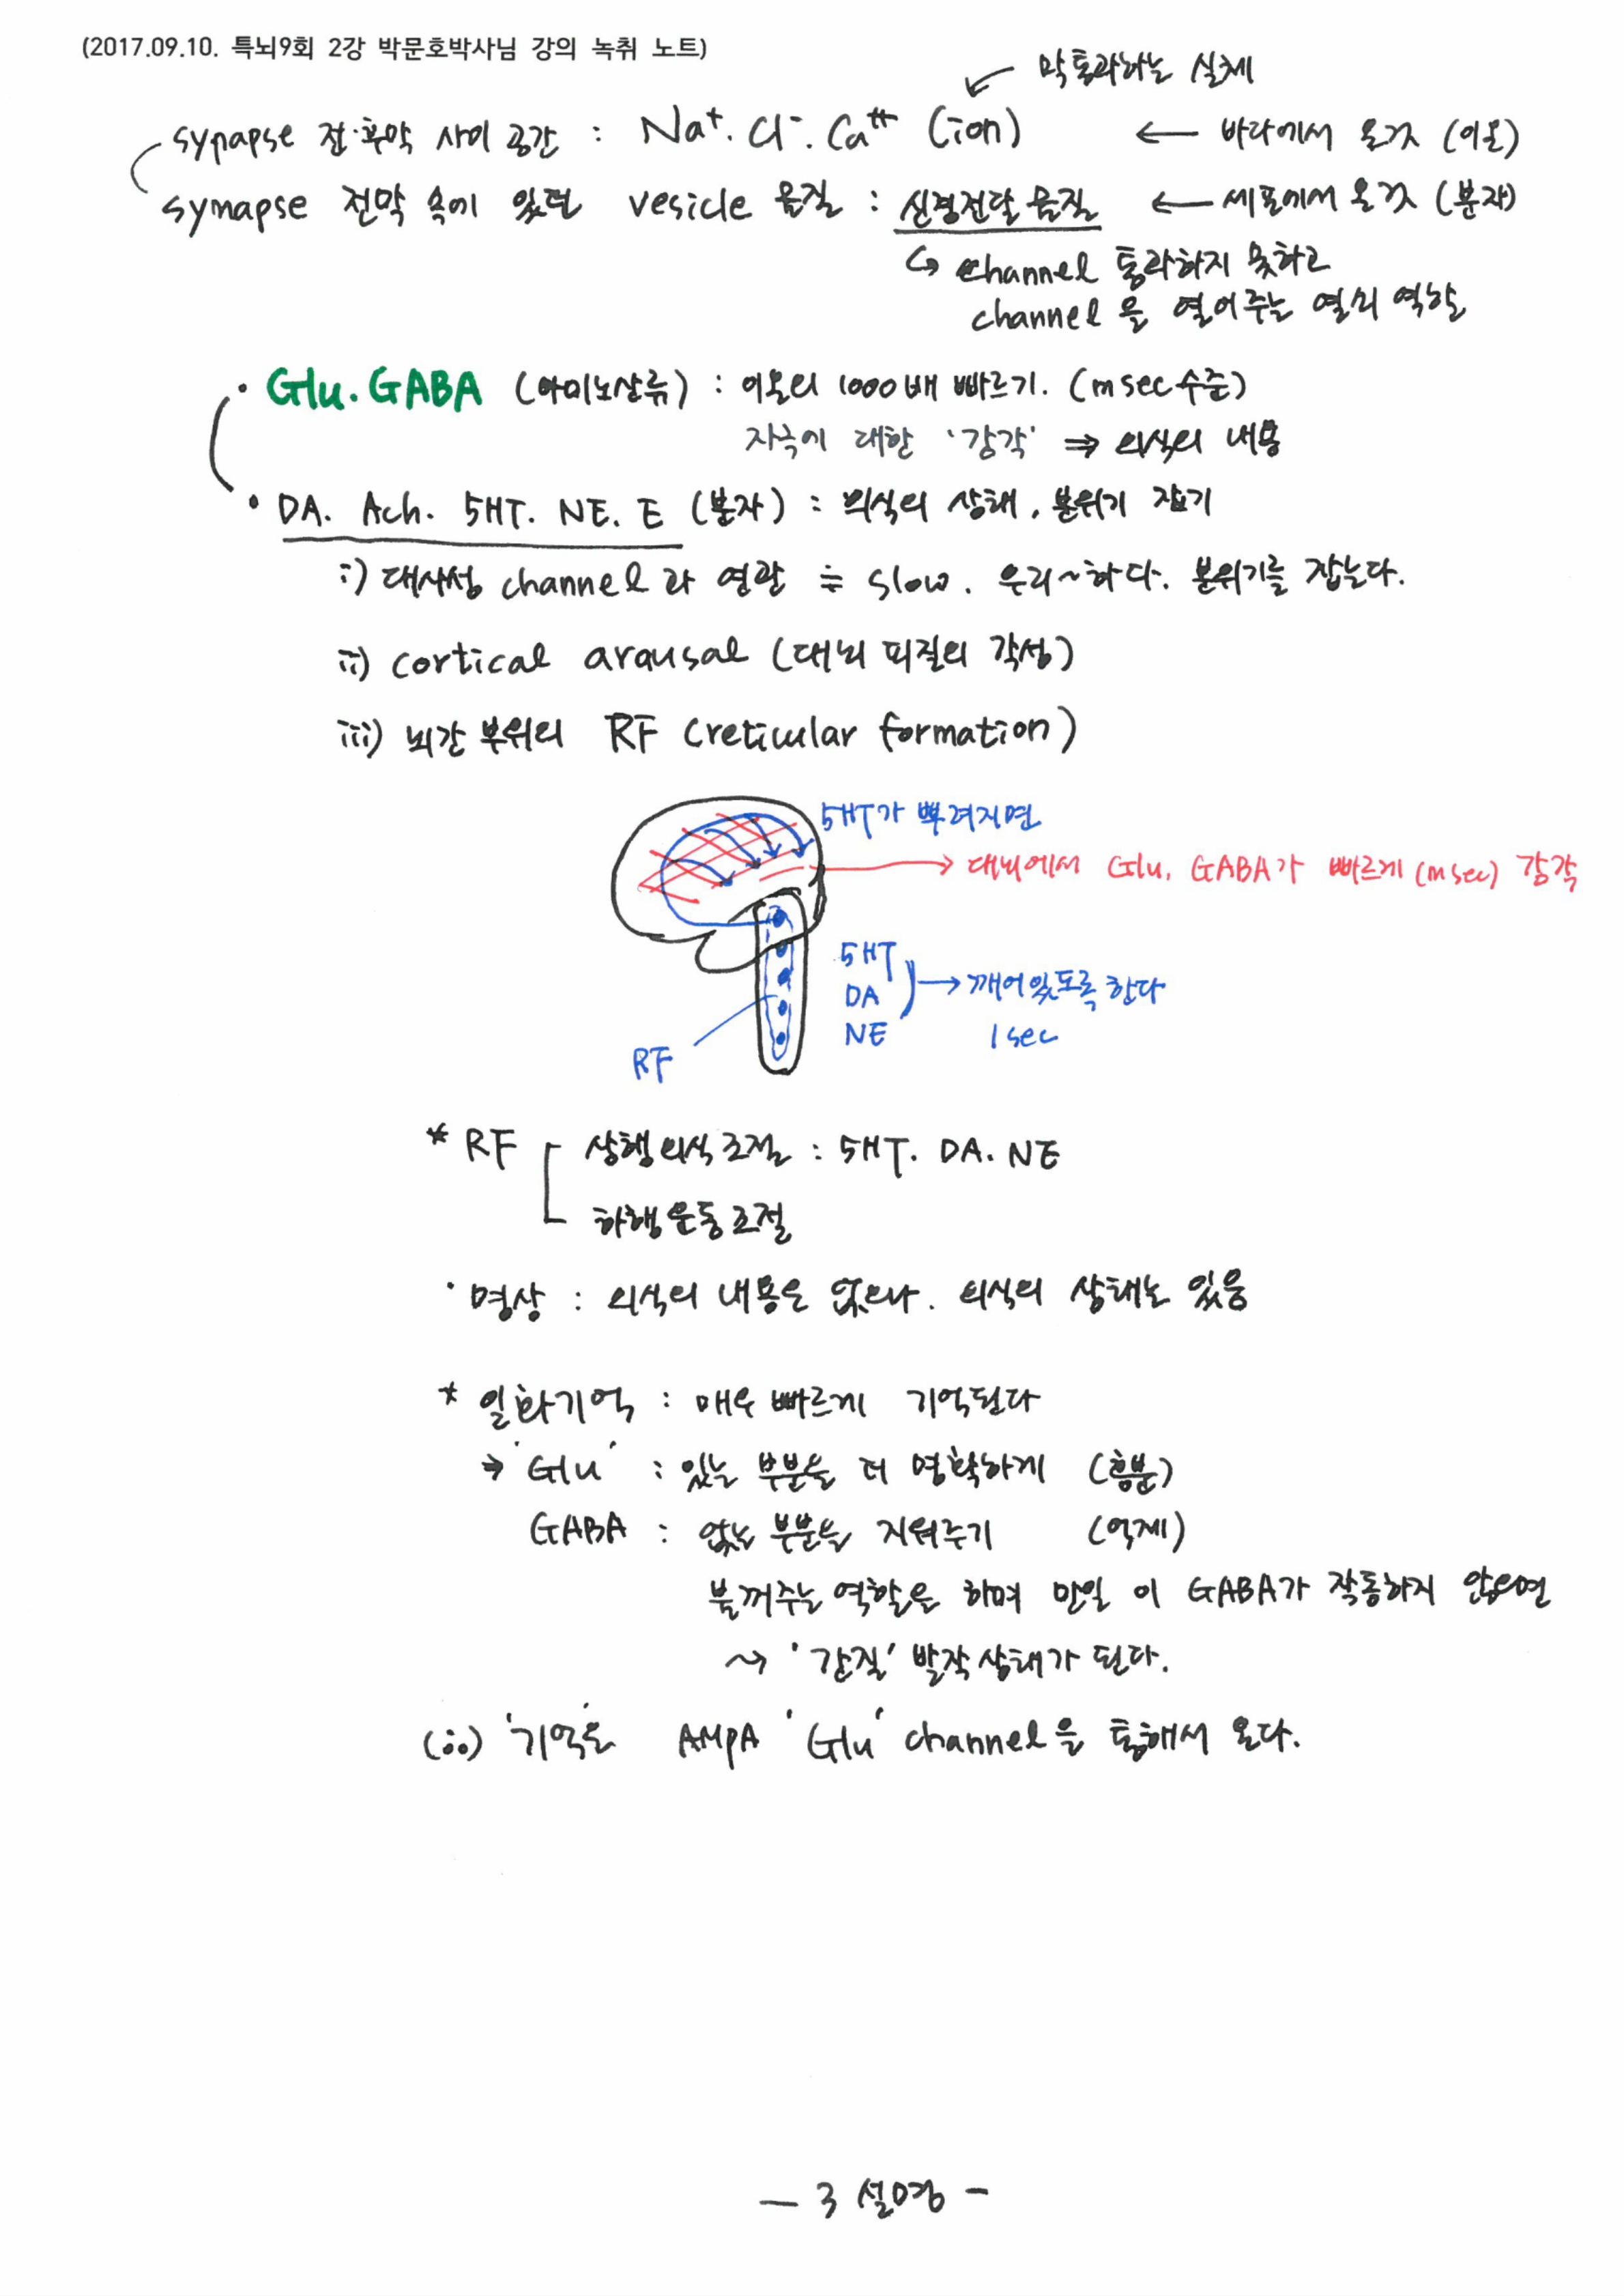 (2017.09.10. 특뇌9회 2강 박문호박사님 강의 녹취 노트)
막통과하는 실체
synapse 전·후막 사이 공간 : Na⁺. Cl⁻. Ca⁺⁺ (ion) ← 바다에서 온것 (이온)
synapse 전막 속에 있던 vesicle 물질 : 신경전달물질 ← 세포에서 온것 (분자)
↳ channel 통과하지 못하고
channel을 열어주는 열쇠 역할
· Glu. GABA (아미노산류) : 이온의 1000배 빠르기. (msec수준)
자극에 대한 '감각' ⇒ 의식의 내용
· DA. Ach. 5HT. NE. E (분자) : 의식의 상태, 분위기 잡기
i) 대사성 channel과 연관 ≒ slow. 우리~하다. 분위기를 잡는다.
ii) cortical arausal (대뇌 피질의 각성)
iii) 뇌간 부위의 RF (reticular formation)
5HT가 뿌려지면
→ 대뇌에서 Glu, GABA가 빠르게(msec) 감각
5HT
DA → 깨어있도록 한다
NE 1sec
RF
* RF 상행의식조절 : 5HT. DA. NE
하행운동조절
· 명상 : 의식의 내용은 없으나. 의식의 상태는 있음
* 일화기억 : 매우 빠르게 기억된다
→ 'Glu' : 있는 부분을 더 명확하게 (흥분)
GABA : 없는 부분을 지워주기 (억제)
불꺼주는 역할을 하며 만일 이 GABA가 작동하지 않으면
~> '간질' 발작상태가 된다.
'기억'은 AMPA 'Glu' channel을 통해서 온다.
— 3 설명 –